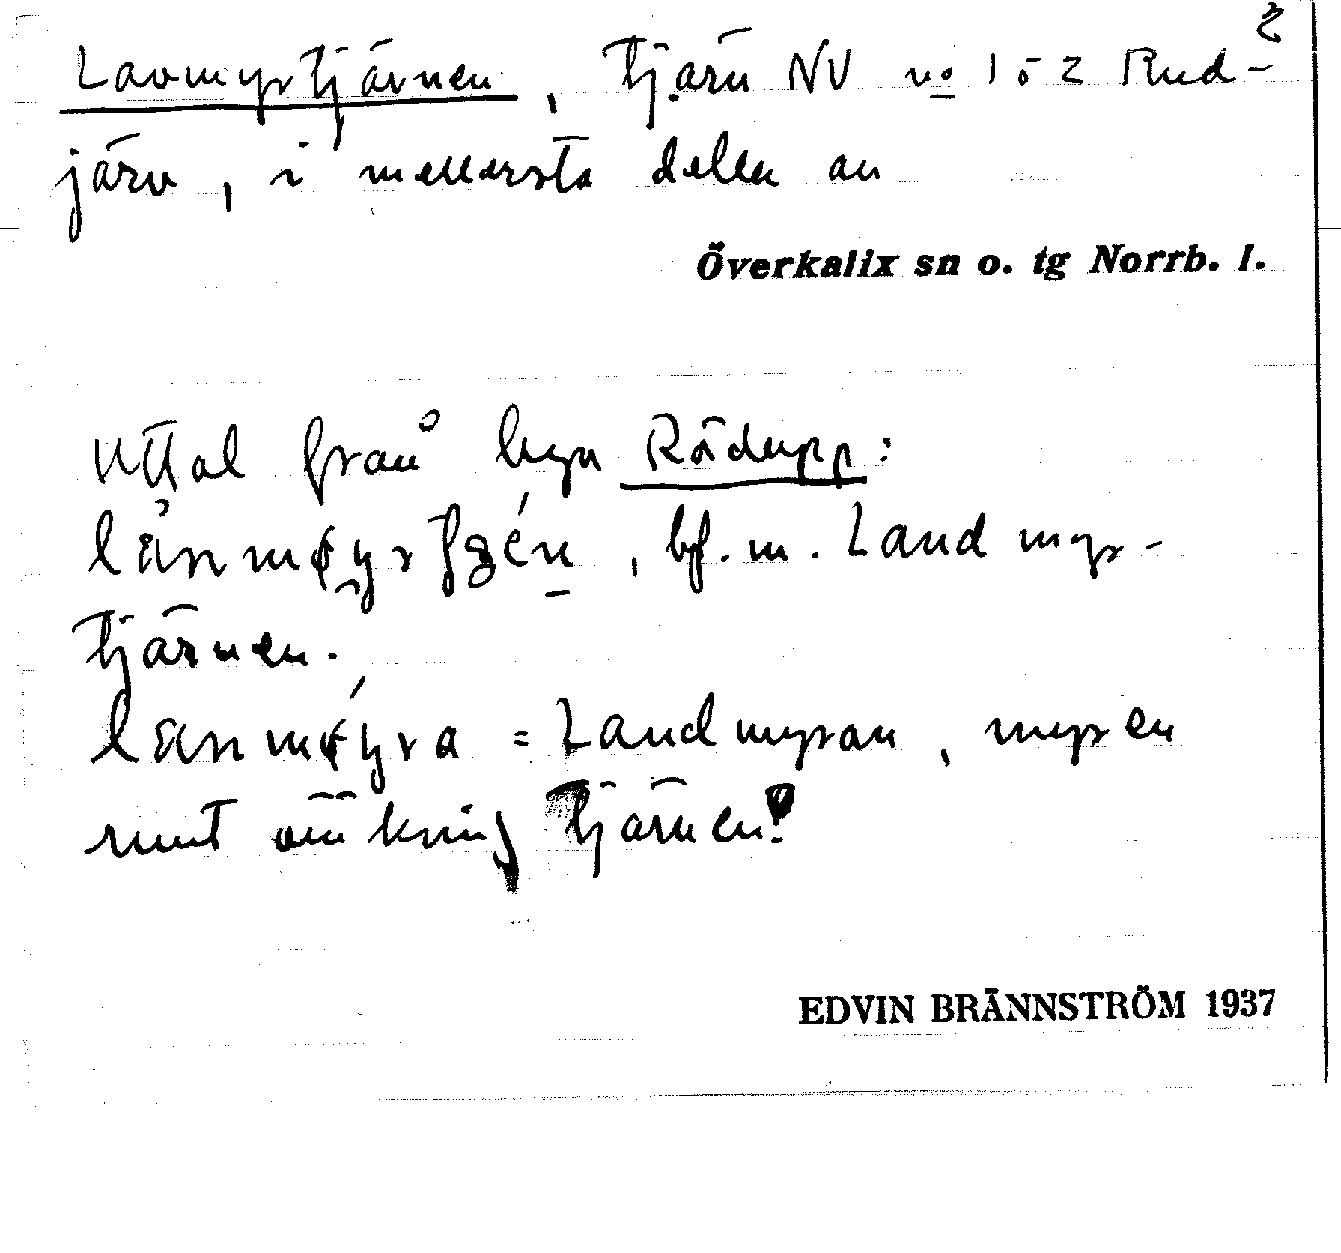 Lavmyrtjärnen, tjärn NV no 1 o 2 Rud-
järv, i mellersta delen av
Överkalix sn o. tg Norrb. l.
Uttal från byn Rödupp:
bf. m. Landmyr-
tjärnen.
= Landmyran, myren
runt omkring tjärnen!
EDVIN BRÄNNSTRÖM 1937